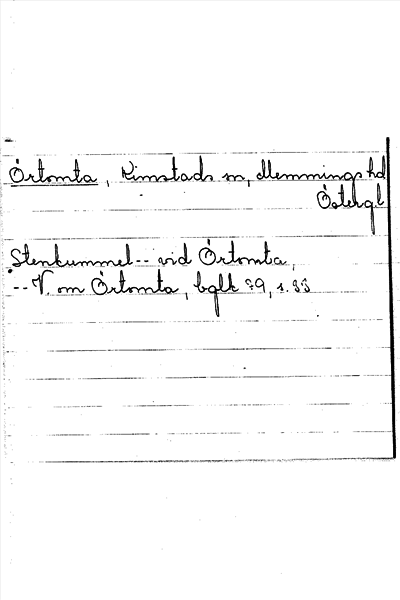 Örtomta, Kimstads sn, Memmings hd
Östergl
Stenkummel -- vid Örtomta,
-- V. om Örtomta, bglk 39, s. 33